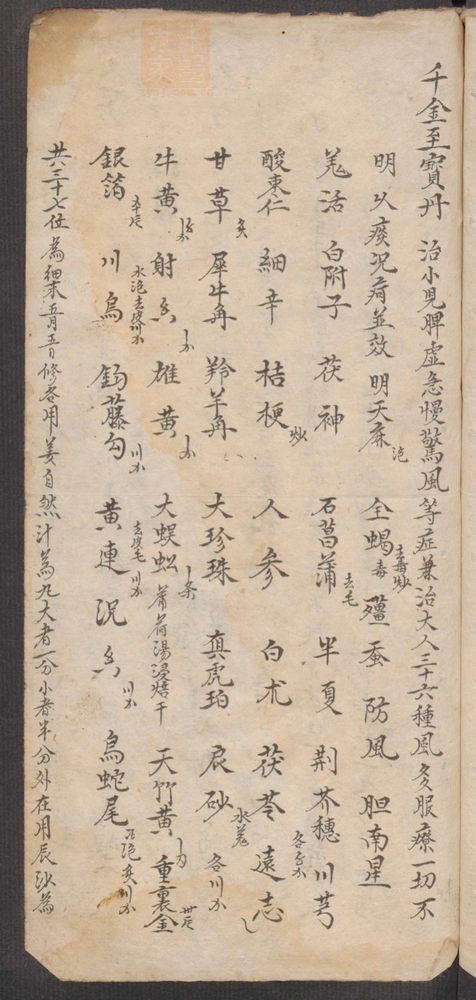 千金至寶丹 治小兒脾虛急慢驚風等症兼治大人三十六種風久服療一切不
明久痰沉疴並效 明天麻泡 全蝎去毒炒 殭蚕 防風 胆南星
羌活 白附子 茯神 石菖蒲去毛 半夏 荆芥穗 川芎各
酸枣仁 細辛 桔梗炒 人参 白朮 茯苓 遠志水煮
甘草炙 犀牛角 羚羊角 大珍珠 真虎珀 辰砂各
牛黄 射香 雄黄 大蜈蚣一条去皮毛 薄荷湯浸焙干 天竹黄 重裏金
銀箔五十片 川烏水泡去皮 鈎藤勾 黄連 沉香 烏蛇尾
共三十七位為細末五月五日修合用姜自然汁為丸大者一分小者半分外在用辰砂為